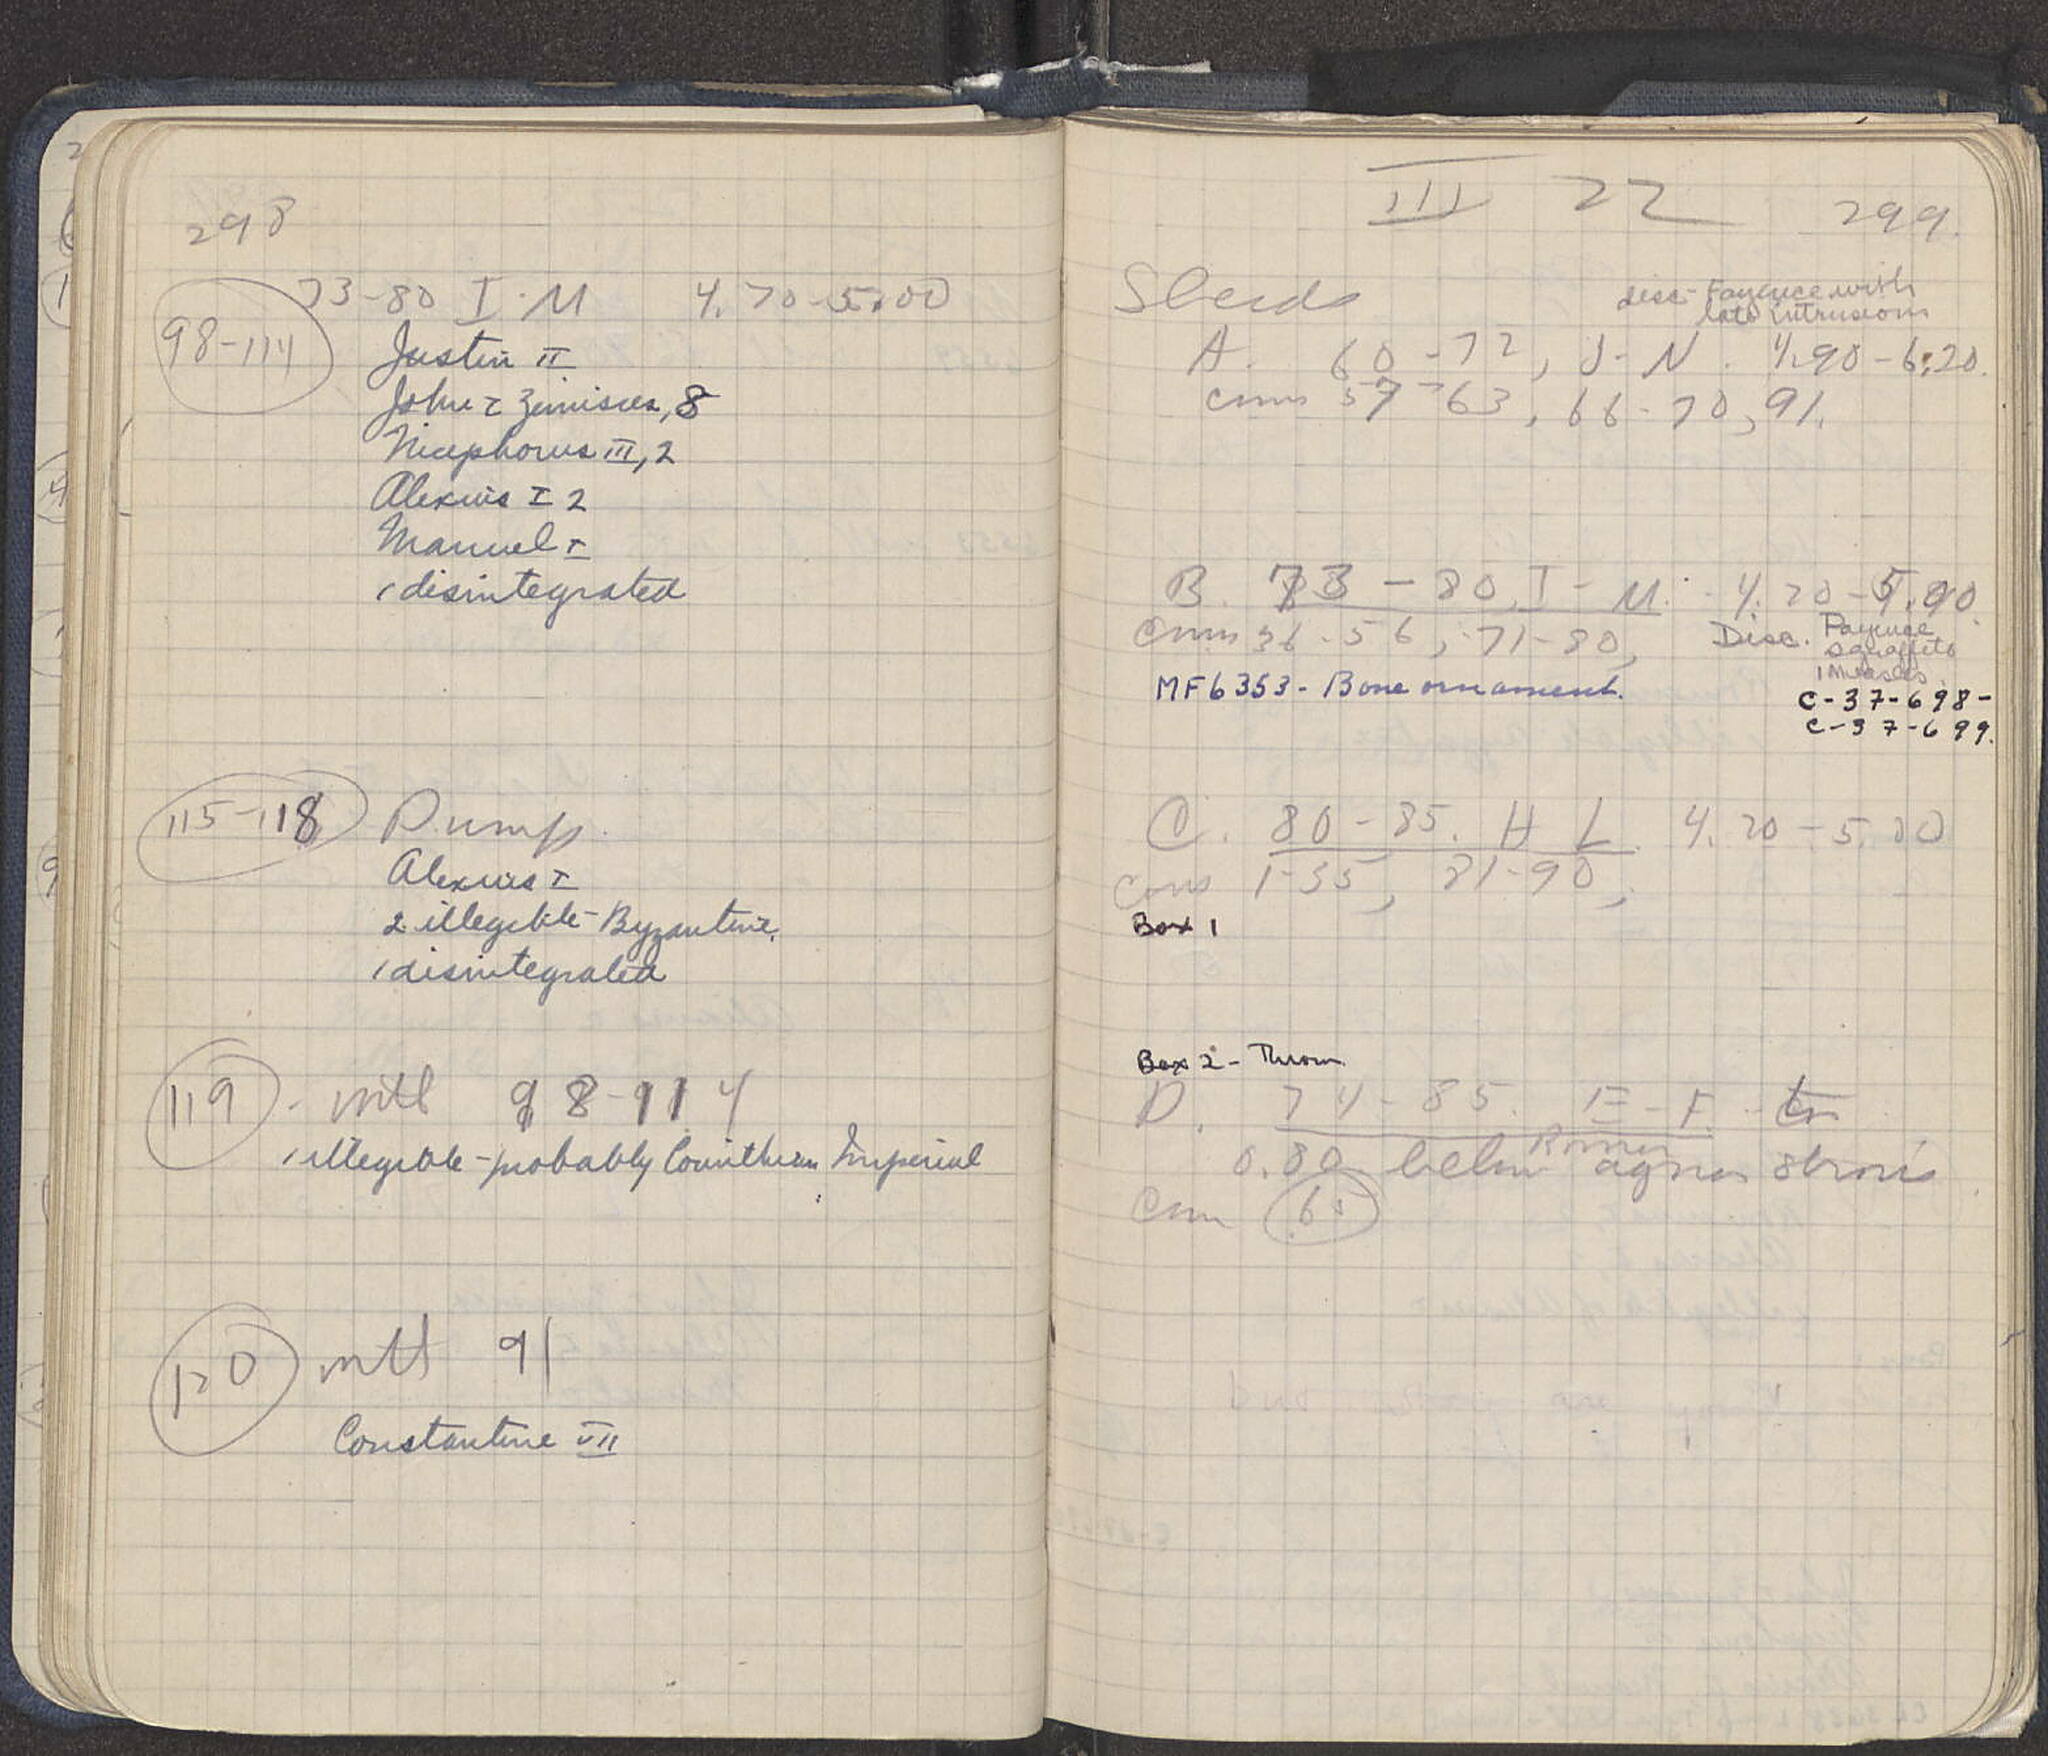 298
73-80 I-M 4.70-5.00
98-114
Justin II
John I Zimisces, 8
Nicephorus III, 2
Alexius I 2
Manuel I
1 disintegrated
115-118 Dump.
Alexius I
2 illegible-Byzantine.
1 disintegrated
119 - with 98-114
1 illegible-probably Corinthian Imperial
120 with 91
Constantine VII
III 22 299.
Sherds
disc- Fayence with
late intrusions
A. 60-72, J-N. 4.90-6.20.
coins 57-63, 66-70, 91.
B. 73-80 I-M. 4.70-5.00
coins 36-56, 71-80,
Disc. Fayence
sgraffito
1 Measles.
MF6353- Bone ornament.
C-37-698-
C-37-699.
C. 80-85. H L. 4.70-5.00
coins 1-35, 81-90,
Box 1
Box 2- Thrown
D. 74-85. E-F.
0.80 below Roman agora
coin 65